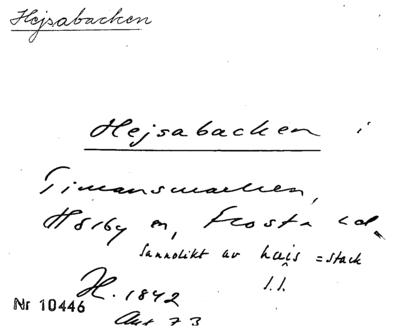 Hejsabacken
Hejsabacken i
Timansmarken,
Hörby sn, Frosta hd.
Sannolikt av hajs = stack
H. 1842
Nr 10446
73